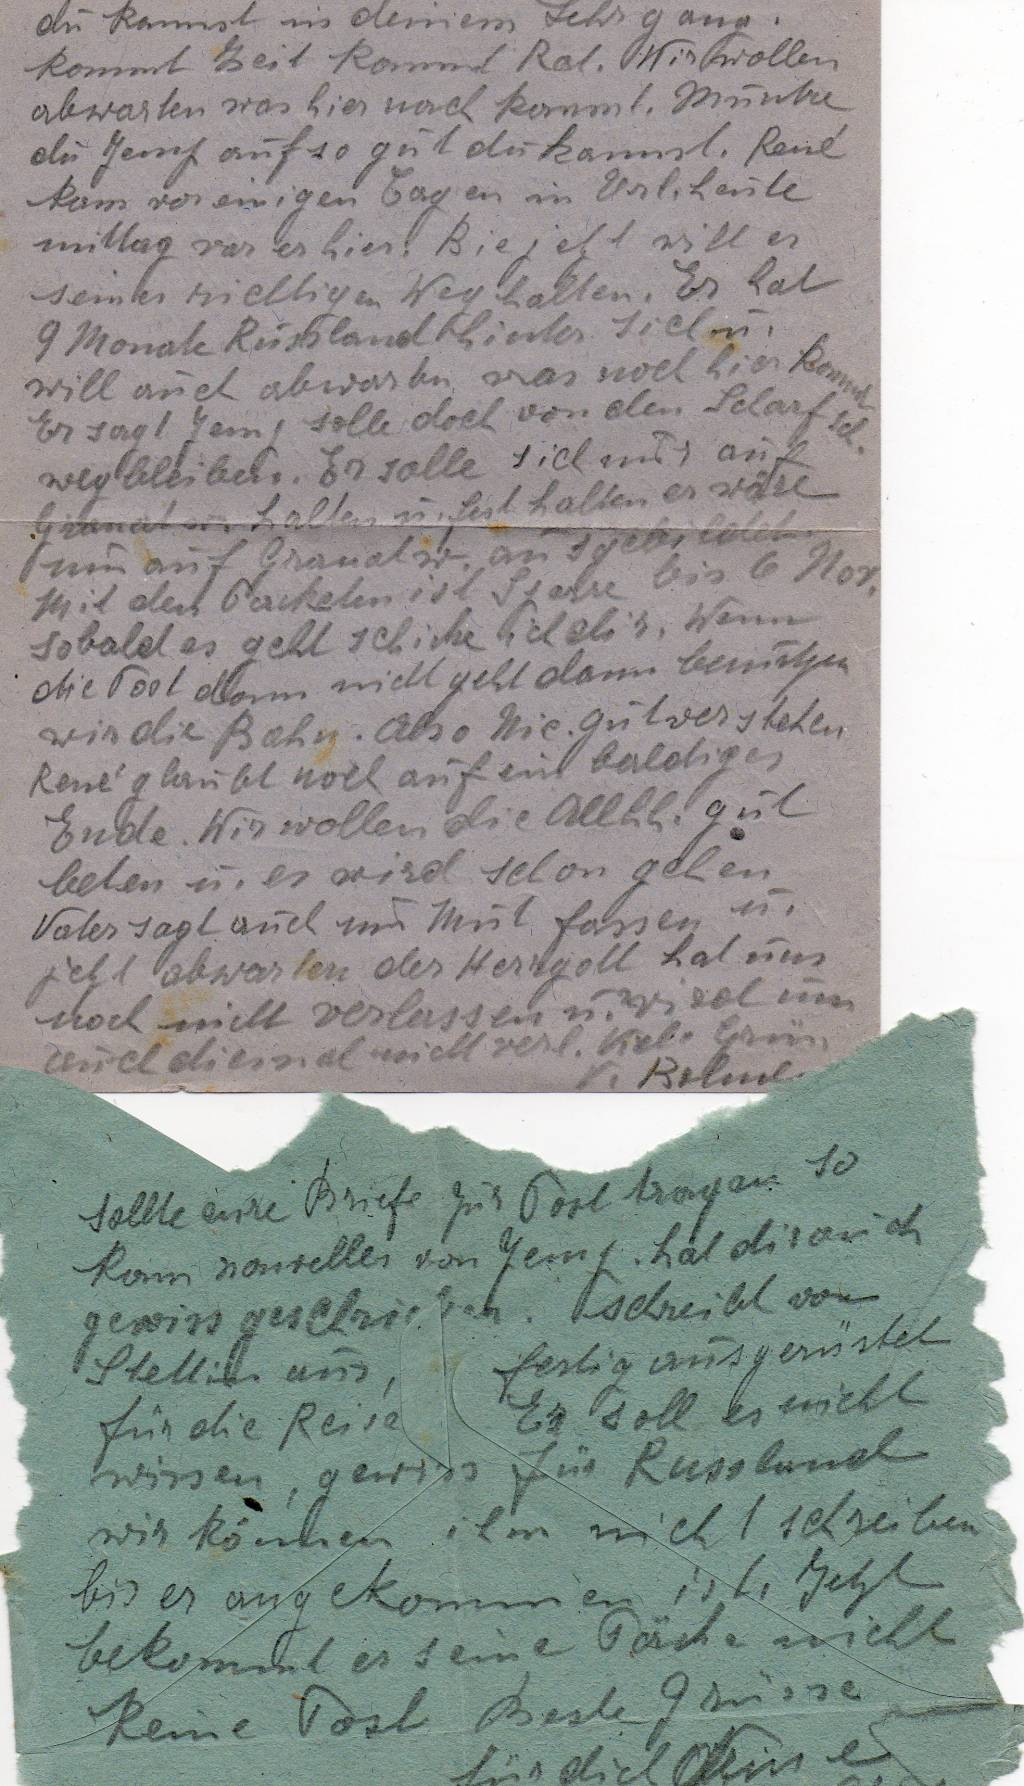 du kannst in deinem Lehrgang.
kommt Zeit kommt Rat. Wir wollen
abwarten was hier noch kommt. Muntre
du Jemp auf so gut du kannst. René
kam vor einigen Tagen in Url. heute
mittag war er hier. Bie jetzt will er
seiner richtigen Weg halten. Er hat
9 Monate Russland hinter sich u.
will auch abwarten was noch hier kommt
Er sagt Jemp solle doch von den Scharfsch.
wegbleiben. Er solle sich nur auf
Granatw. halten u. fest halten er wäre
nur auf Granatw. ausgebildet.
Mit den Packeten ist Sperre bis 6 Nov.
sobald es geht schicke ich dir. Wenn
die Post dann nicht geht dann benutzen
wir die Bahn. Also Nic. gut verstehen
René glaubt noch auf ein baldiges
Ende. Wir wollen die Allhl. gut
beten u. es wird schon gehen
Vater sagt auch nur Mut fassen u.
jetzt abwarten der Herrgott hat uns
noch nicht verlassen u. wird uns
auch diesmal nicht verl. Viele Grüsse
v.
sollte eure Briefe zur Post tragen so
kam nouvelles von Jemp. hat dir auch
gewiss geschrieben. schreibt von
Stettin aus, fertig ausgerüstet
für die Reise Er soll es nicht
wissen, gewiss für Russland
wir können ihm nicht schreiben
bis er angekommen ist. Jetzt
bekommt er seine Päcke nicht
keine Post Beste Grüsse
für dich